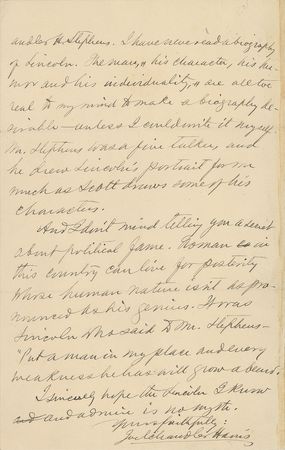 ander H. Stephens. I have never read a biography
of Lincoln. The man, & his character, his hu-
mor and his individuality, & are all too
real to my mind to make a biography de-
sirable — unless I could write it myself.
Mr. Stephens was a fine talker, and
he drew Lincoln's portrait for me
much as Scott draws some of his
characters.
And I don't mind telling you a secret
about political fame. No man in
this country can live for posterity
whose human nature isn't as pro-
nounced as his genius. It was
Lincoln who said to Mr. Stephens —
"Put a man in my place and every
weakness he has will grow a beard."
I sincerely hope the Lincoln I know
and admire is no myth.
Yours faithfully:
Joel Chandler Harris